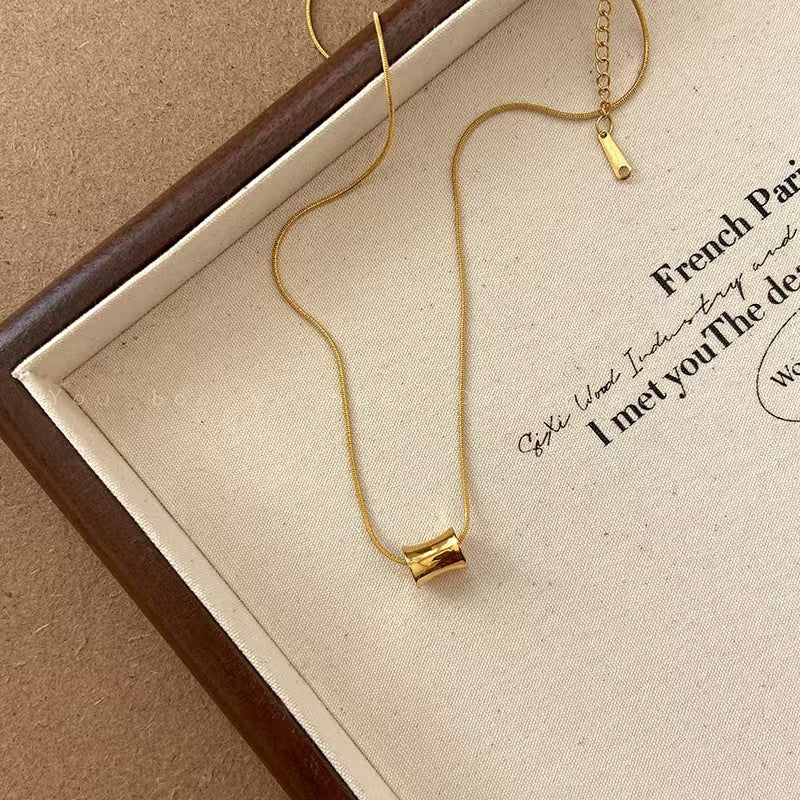 French Pari
SiXi Wood Industry and
I met youThe de
Wo